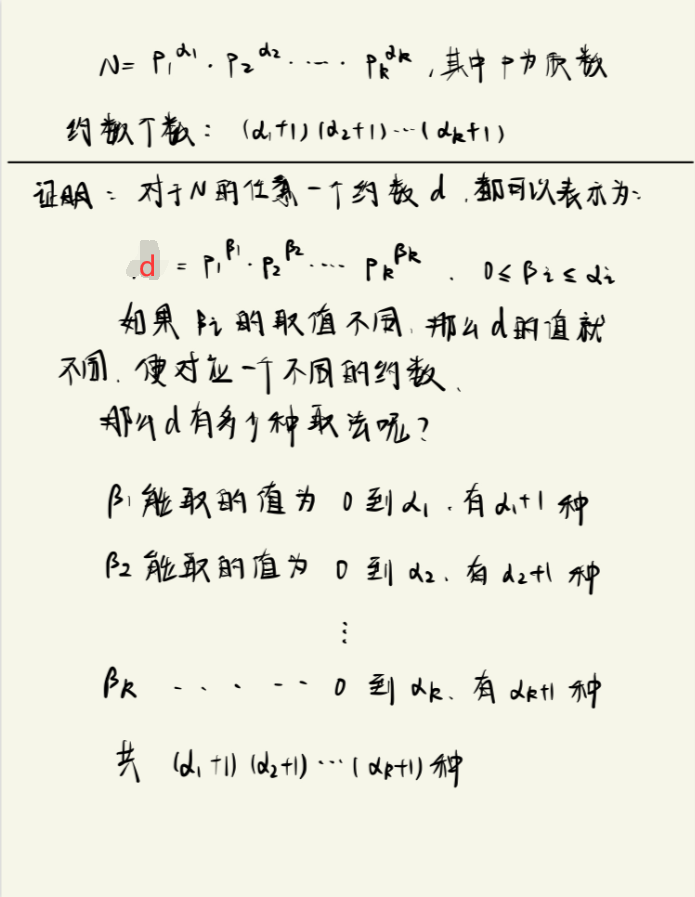 N= P₁^α₁ · P₂^α₂ · ···· · Pₖ^αₖ ,其中P为质数
约数个数: (α₁+1)(α₂+1)···(αₖ+1)
证明: 对于N的任意一个约数 d ,都可以表示为:
d = P₁^β₁ · P₂^β₂ ···· Pₖ^βₖ . 0≤βi≤αi
如果 βi 的取值不同, 那么d的值就
不同. 便对应一个不同的约数、
那么d有多少种取法呢?
β₁ 能取的值为 0 到 α₁ . 有 α₁+1 种
β₂ 能取的值为 0 到 α₂ . 有 α₂+1 种
⋮
βₖ - · · -- 0 到 αₖ. 有 αₖ+1 种
共 (α₁+1)(α₂+1)···(αₖ+1) 种